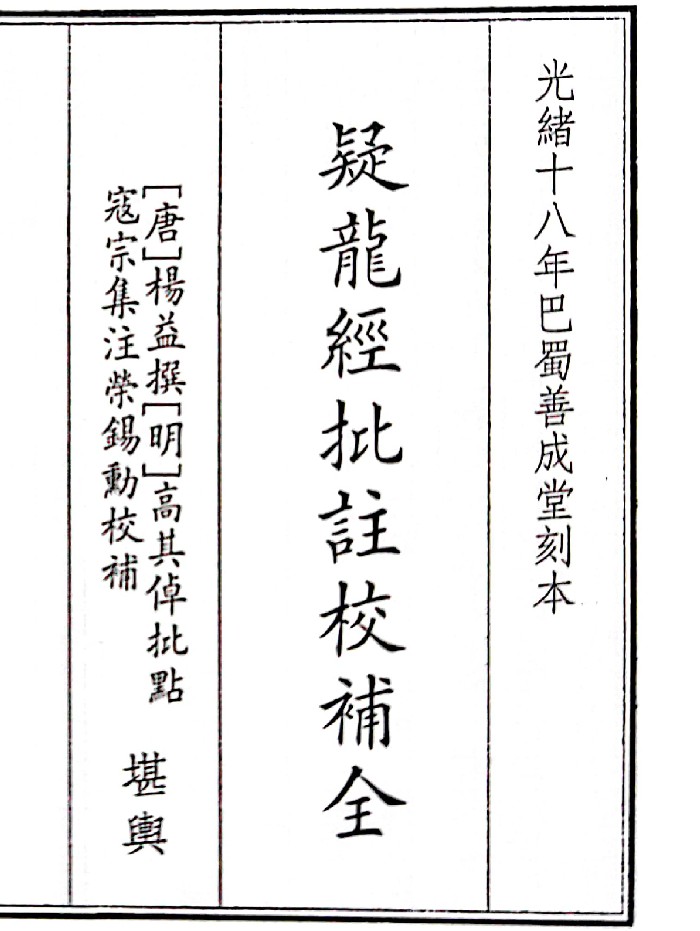 光緒十八年巴蜀善成堂刻本
疑龍經批註校補全
[唐]楊益撰[明]高其倬批點
寇宗集注榮錫勳校補
堪輿